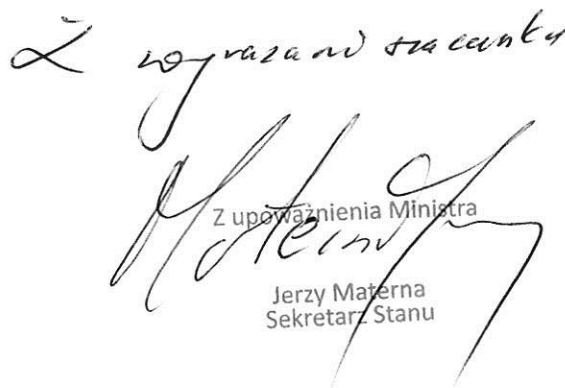 Z wyrazami szacunku
Z upoważnienia Ministra
Materna
Jerzy Materna
Sekretarz Stanu